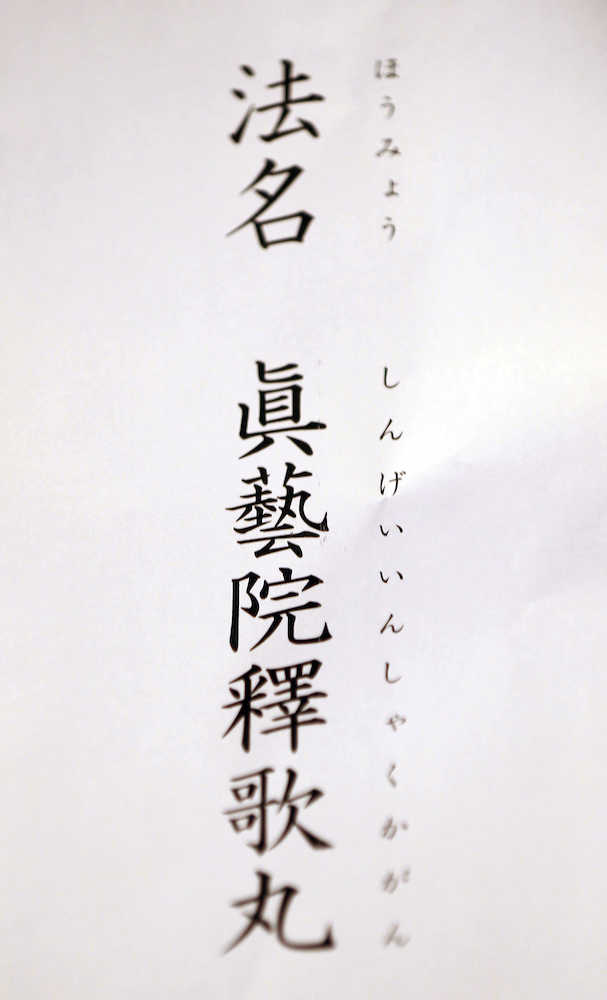 ほうみょう　しんげいいんしゃくかがん
法名　眞藝院釋歌丸